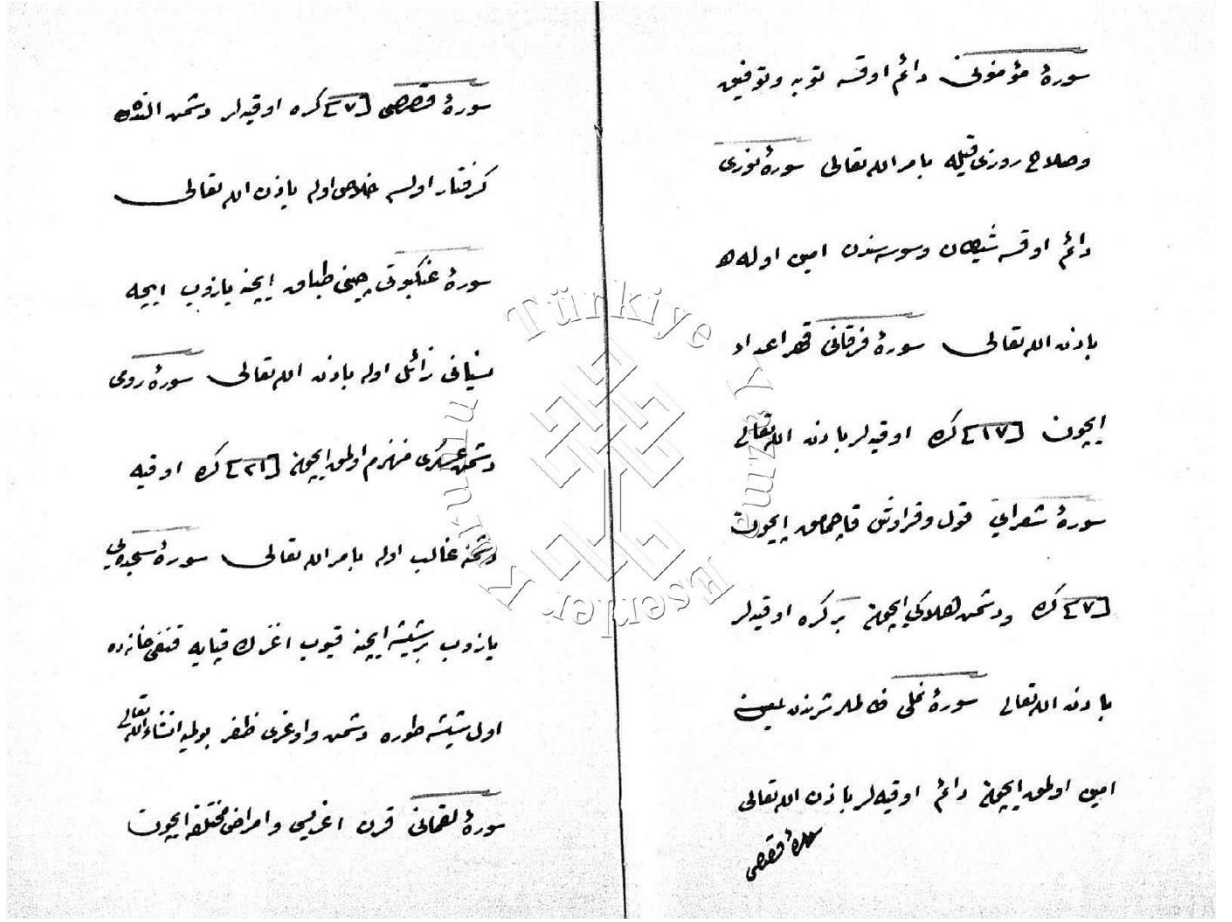 سورهٔ مؤمونی دائم اوقسه توبه وتوفیق
وصلاح روزی قیله بامر الله تعالی سورهٔ نوری
دائم اوقسه شیطان وسوسه‌سندن امین اوله
باذن الله تعالی سورهٔ فرقانی قهر اعداد
ایچون [١٧] کره اوقیه‌لر باذن الله تعالی
سورهٔ شعرایی قول وقراوش قاچمامق ایچون
[٧] کره ودشمن هلاکی ایچون بر کره اوقیه‌لر
باذن الله تعالی سورهٔ نملی ظالملر شرندن
امین اولمق ایچون دائم اوقیه‌لر باذن الله تعالی
سورهٔ قصصی
سورهٔ قصصی [٧] کره اوقیه‌لر دشمن النده
کرفتار اولسه خلاص اوله باذن الله تعالی
سورهٔ عنکبوتی چینی طباق ایچنه یازوب ایچه
نسیانی زائل اوله باذن الله تعالی سورهٔ رومی
دشمن عسکری منهزم اولمق ایچون [٢١] کره اوقیه
دشمنه غالب اوله بامر الله تعالی سورهٔ سجده‌یی
یازوب بر شیشه ایچنه قیوب اغزن قپایه قنغی خانه‌ده
اول شیشه طوره دشمن واوغری ظفر بولمیه انشاءالله تعالی
سورهٔ لقمانی قرن اغریسی وامراض مختلفه ایچون
Türkiye Yazma Eserler Kurumu